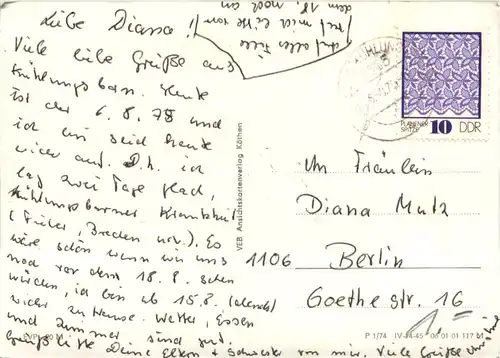 Liebe Diana!!
Auf alle Fälle
ruf mich bitte vor
dem 18. noch an
Viele liebe Grüße aus
Kühlungsborn. Heute
ist der 6.8.78 und
ich bin seid heute
wieder auf. D.h. ich
lag zwei Tage flach,
Kühlungsborner Krankheit
(Fieber, Brechen usw.). Es
wäre schön wenn wir uns
noch vor dem 18.8. sehen
würden, ich bin ab 15.8. (abends)
wieder zu Hause. Wetter, Essen
und Zimmer sind gut.
Grüß bitte Deine Eltern + Schwester von mir. Viele Grüße
VEB Ansichtskartenverlag Köthen
PLAUENER
SPITZE 10 DDR
An Fräulein
Diana Mutz
1106 Berlin
Goethestr. 16
1,-
P 1/74 IV-14-45 06 01 01 117 M